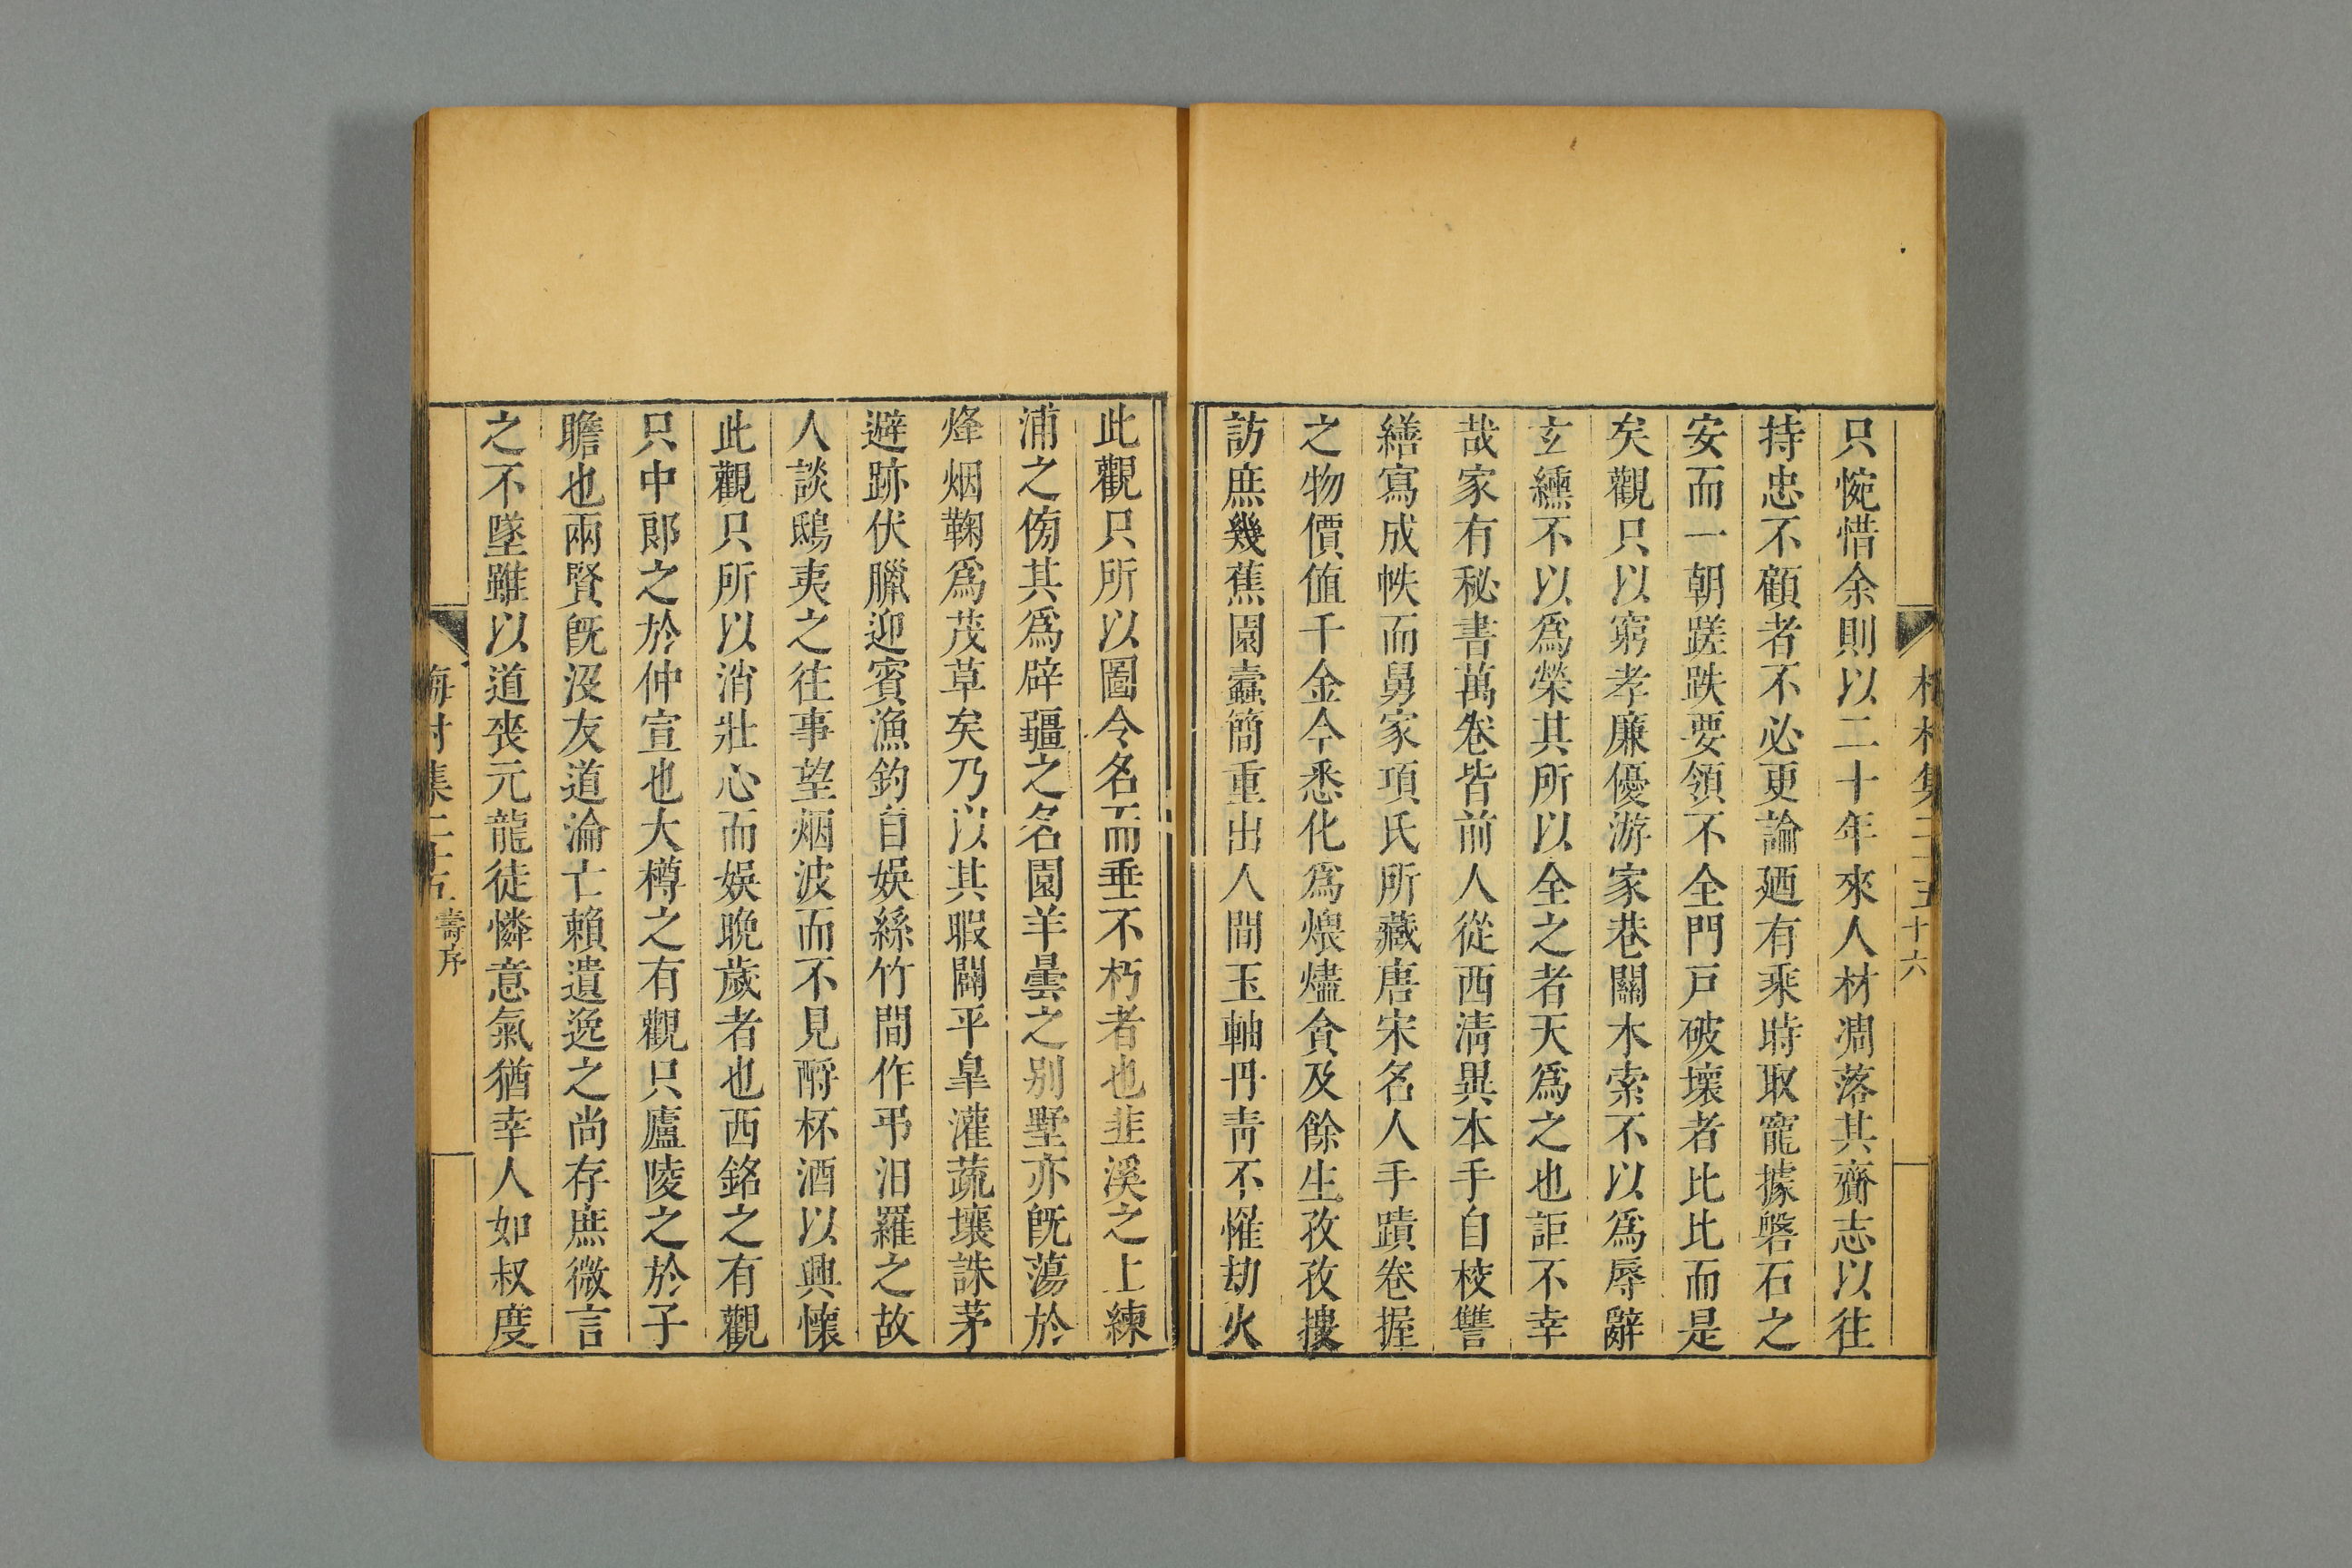 梅村集二十五 十六
只惋惜余則以二十年來人材凋落其齎志以往
持忠不顧者不必更論廼有乘時取寵據磐石之
安而一朝蹉跌要領不全門戸破壞者比比而是
矣觀只以窮孝廉優游家巷關木索不以爲辱辭
玄纁不以爲榮其所以全之者天爲之也詎不幸
哉家有秘書萬卷皆前人從西淸異本手自校讐
繕寫成帙而舅家項氏所藏唐宋名人手蹟卷握
之物價値千金今悉化爲煨燼貪及餘生孜孜摟
訪庶幾蕉園蠹簡重出人間玉軸丹靑不罹劫火
此觀只所以圖令名而垂不朽者也韭溪之上練
浦之傍其爲辟疆之名園羊曇之别墅亦旣蕩於
烽烟鞠爲茂草矣乃以其暇闢平臯灌蔬壤誅茅
避跡伏臘迎賓漁釣自娛絲竹間作弔汨羅之故
人談鴟夷之往事望烟波而不見酹杯酒以興懷
此觀只所以消壯心而娛晚歲者也西銘之有觀
只中郞之於仲宣也大樽之有觀只廬陵之於子
瞻也兩賢旣沒友道淪亡賴遺逸之尚存庶微言
之不墜雖以道喪元龍徒憐意氣猶幸人如叔度
梅村集二十五 壽序